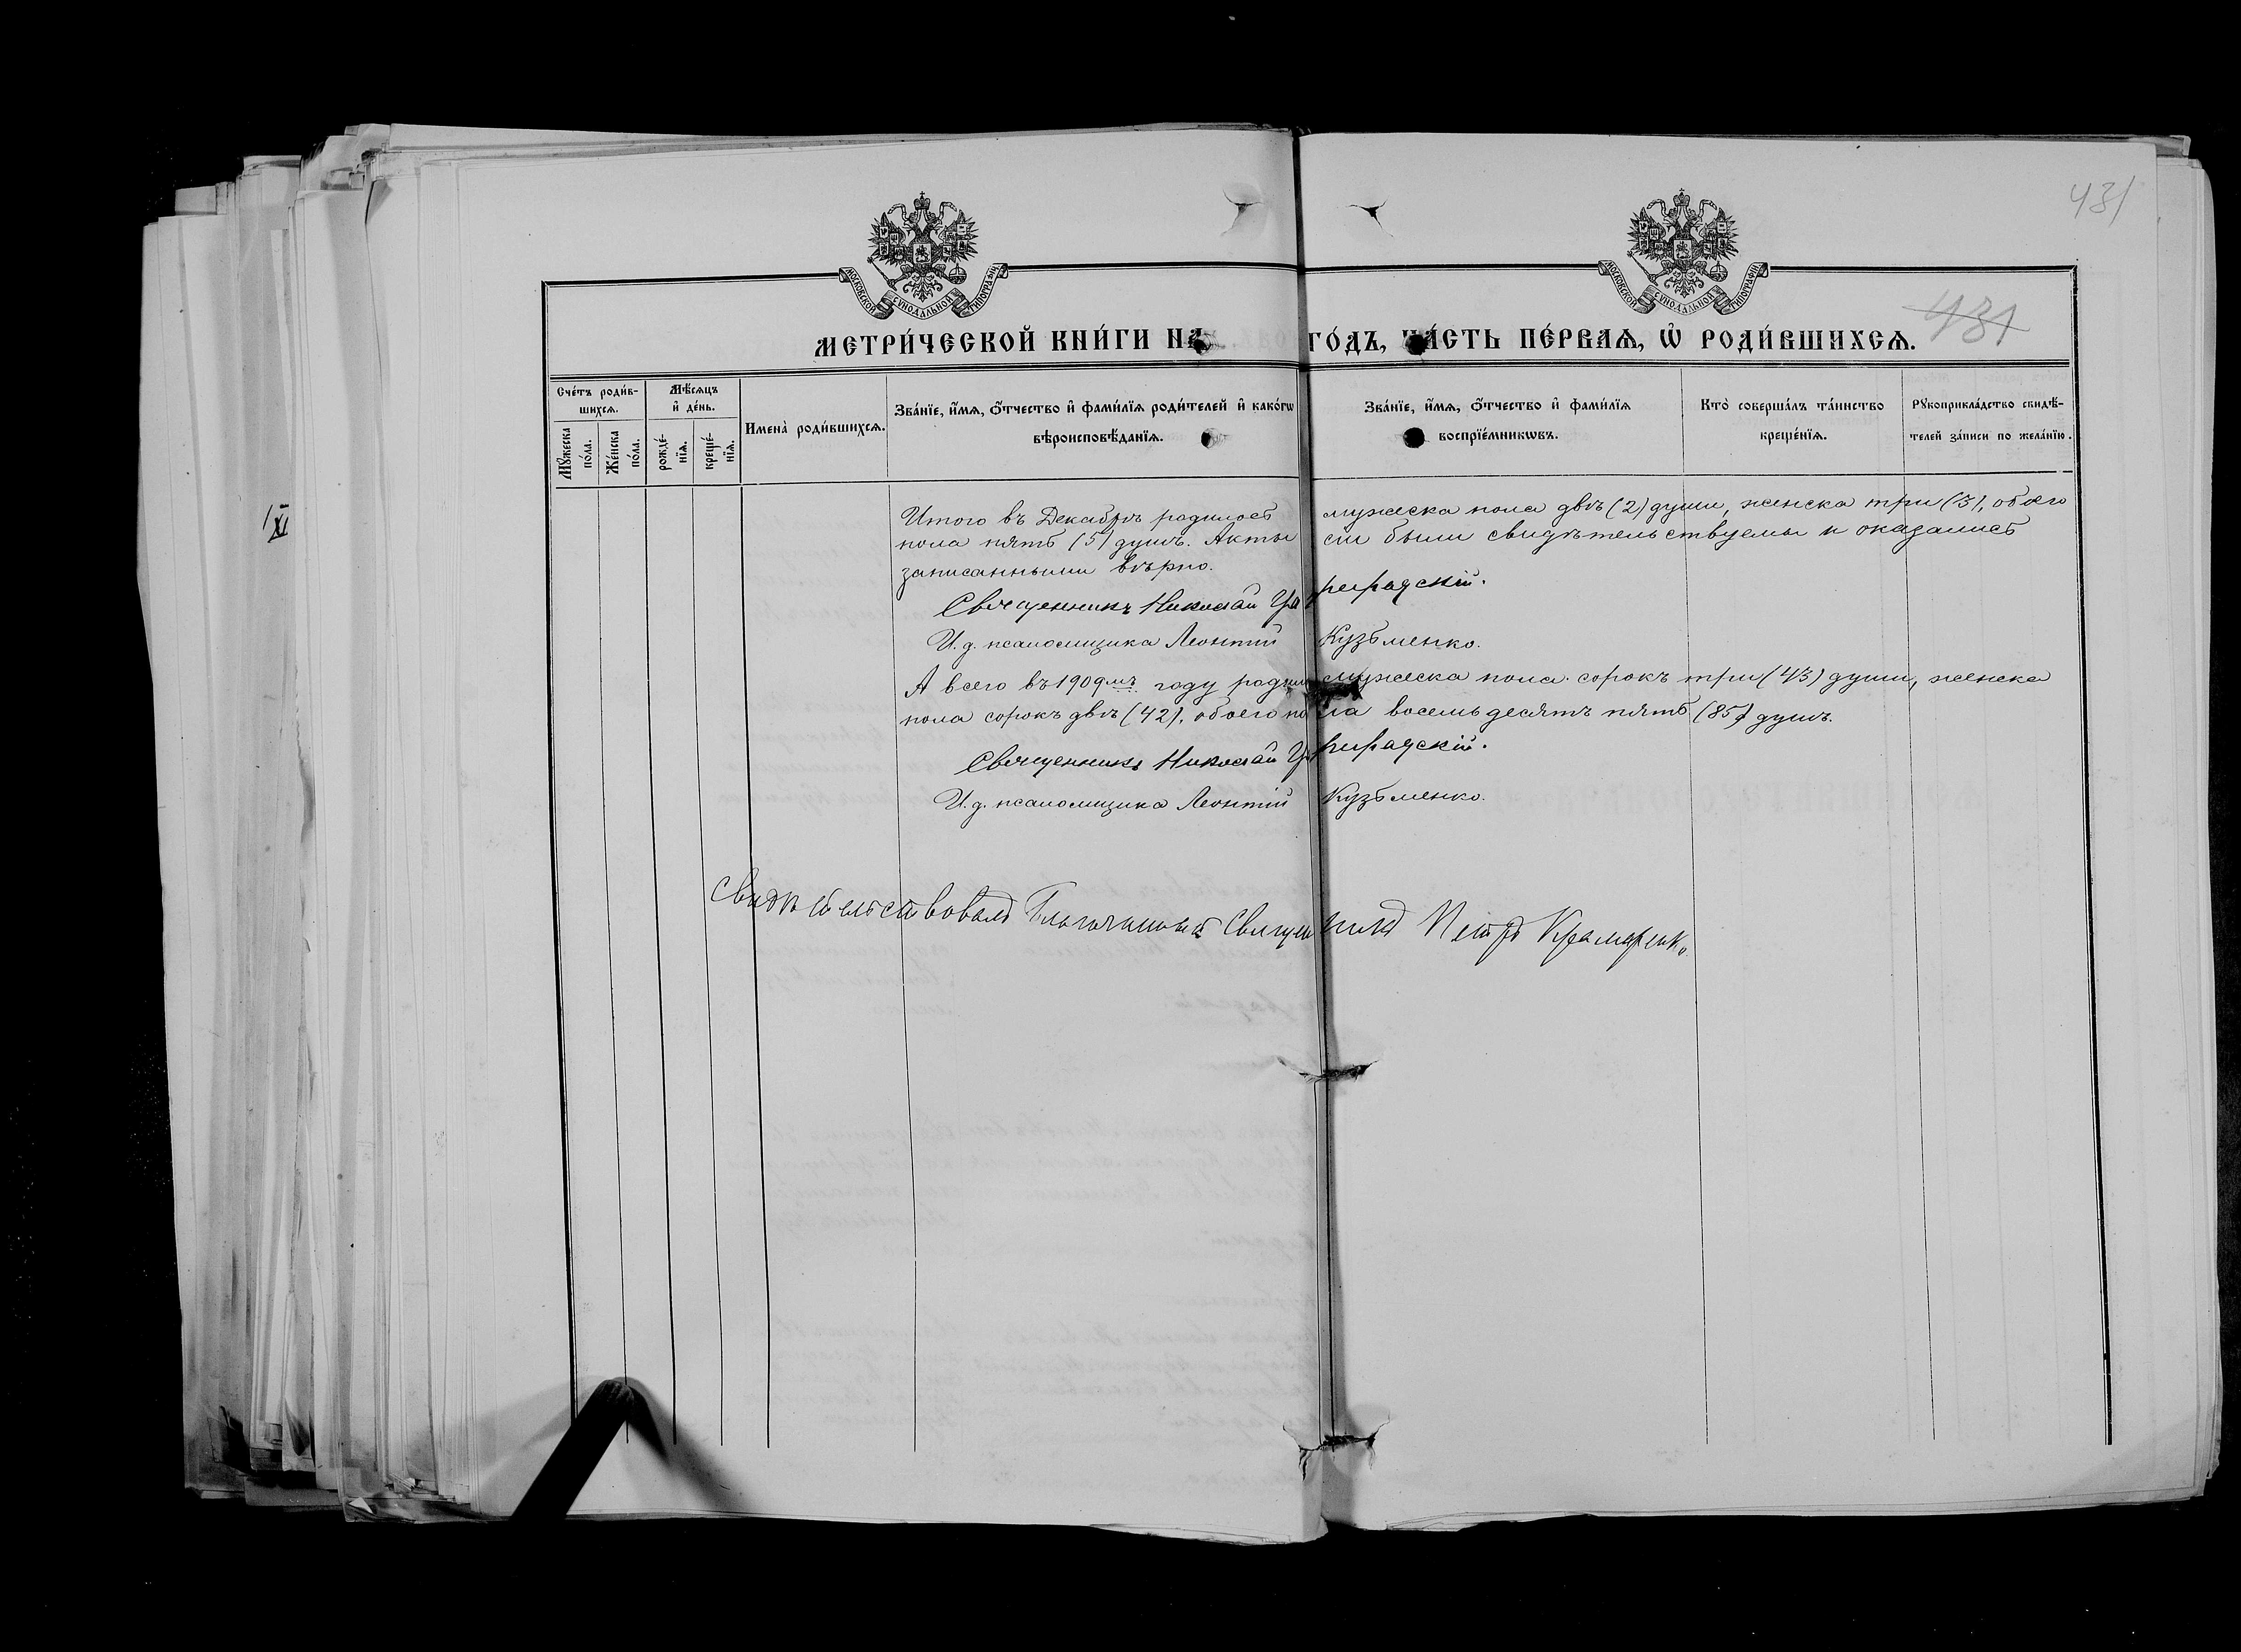 431
431
МОСКОВСКОЙ СѴНОДАЛЬНОЙ ТИПОГРАФІИ
МОСКОВСКОЙ СѴНОДАЛЬНОЙ ТИПОГРАФІИ
МЕТРИ́ЧЕСКОЙ КНИ́ГИ НА ГО́ДЪ, ЧА́СТЬ ПЕ́РВАѦ, Ѡ҆ РОДИ́ВШИХСѦ.
Сче́тъ роди́в-
шихсѧ.
Мꙋ́жеска
по́ла.
Же́нска
по́ла.
Мѣ́сѧцъ
и҆ де́нь.
рожде́-
нїѧ.
креще́-
нїѧ.
Имена̀ роди́вшихсѧ.
Зва́нїе, и҆́мѧ, ѻ҆́тчество и҆ фами́лїѧ роди́телей и҆ како́гѡ
вѣроисповѣ́данїѧ.
Зва́нїе, и҆́мѧ, ѻ҆́тчество и҆ фами́лїѧ
воспрїе́мникѡвъ.
Кто̀ соверша́лъ та́инство
креще́нїѧ.
Рꙋкоприкла́дство свидѣ́-
телей за́писи по жела́нїю.
Итого въ Декабрѣ родилось мужеска пола двѣ (2) души, женска три (3), обоего
пола пять (5) душъ. Акты сіи были свидѣтельствуемы и оказались
записанными вѣрно.
Священникъ Николай
И. д. псаломщика Леонтій Кузьменко.
А всего въ 1909мъ году мужеска пола сорокъ три (43) души, женска
пола сорокъ двѣ (42), обоего пола восемьдесятъ пять (85) душъ.
Священникъ Николай
И. д. псаломщика Леонтій Кузьменко.
Свидѣтельствовалъ Благочинный Священникъ Петръ Крамаренко.
XI